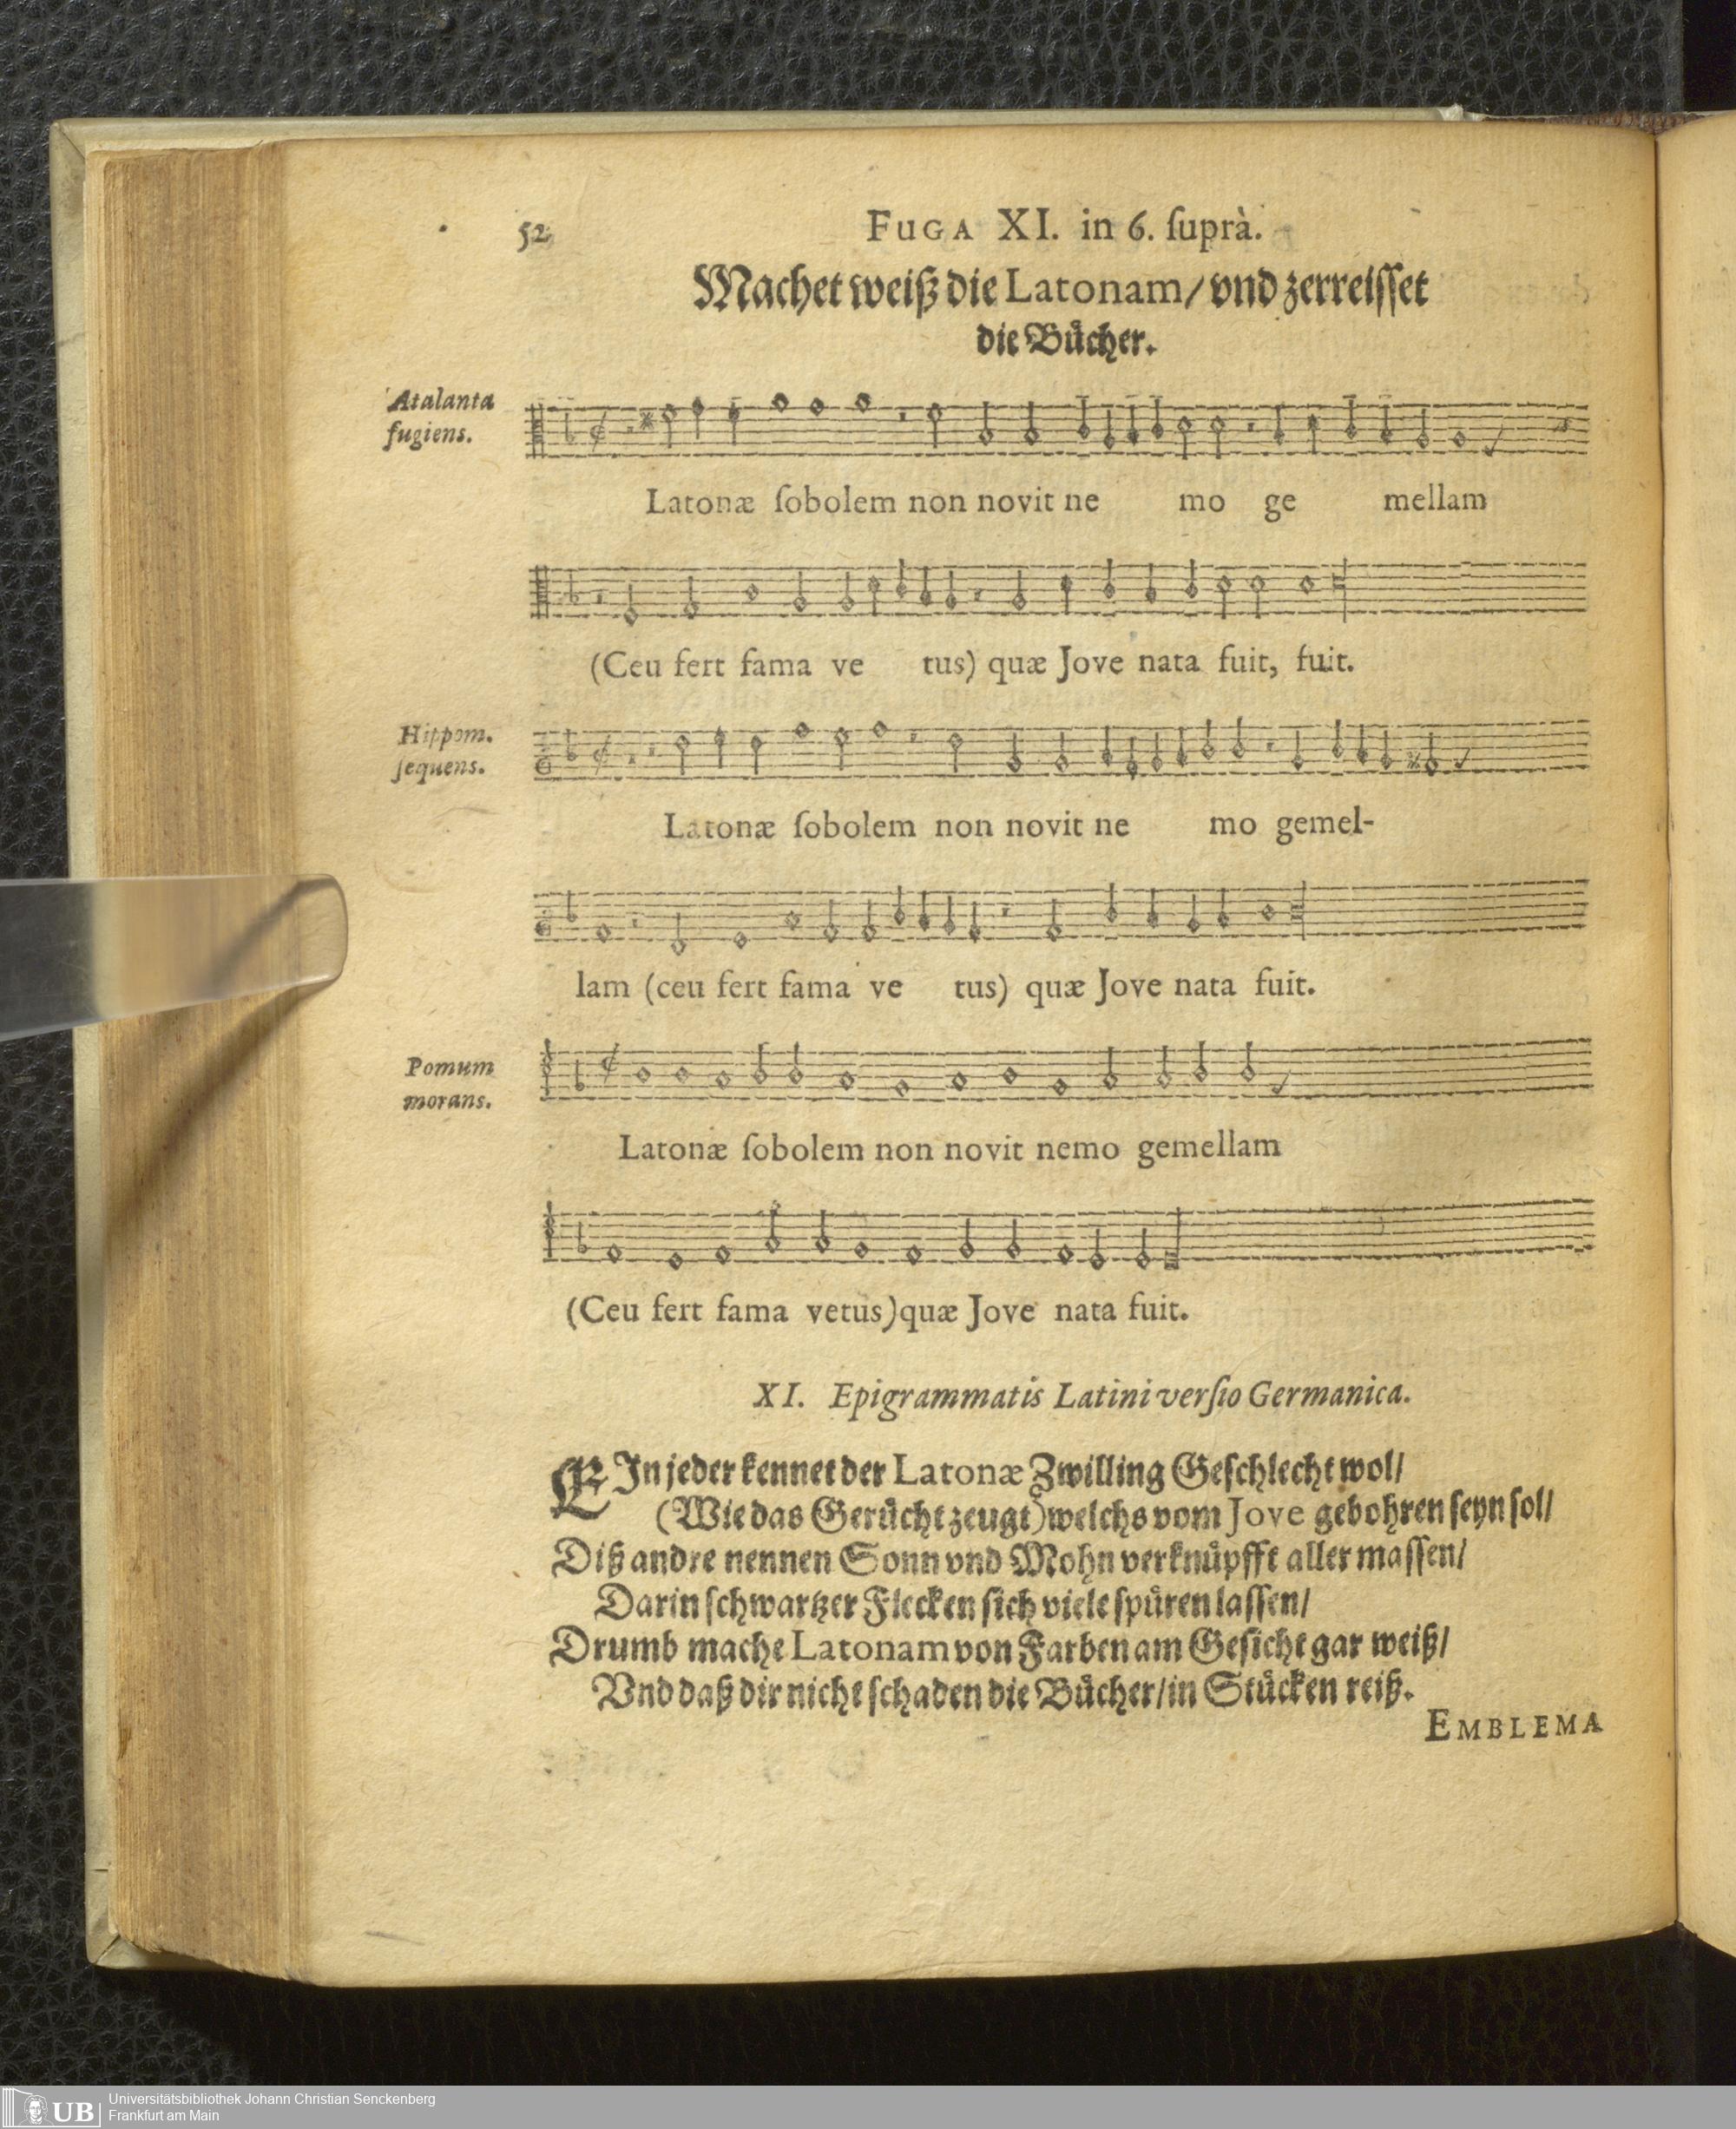 52
FUGA XI. in 6. ſuprà.
Machet weiß die Latonam/ vnd zerreiſſet
die Bůcher.
Atalanta
fugiens.
Latonæ ſobolem non novit ne mo ge mellam
(Ceu fert fama ve tus) quæ Jove nata fuit, fuit.
Hippom.
ſequens.
Latonæ ſobolem non novit ne mo gemel-
lam (ceu fert fama ve tus) quæ Jove nata fuit.
Pomum
morans.
Latonæ ſobolem non novit nemo gemellam
(Ceu fert fama vetus) quæ Jove nata fuit.
XI. Epigrammatis Latini verſio Germanica.
EIn jeder kennet der Latonæ Zwilling Geſchlecht wol/
(Wie das Gerůcht zeugt) welchs vom Jove gebohren ſeyn ſol/
Diß andre nennen Sonn vnd Mohn verknůpfft aller maſſen/
Darin ſchwartzer Flecken ſich viele ſpůren laſſen/
Drumb mache Latonam von Farben am Geſicht gar weiß/
Vnd daß dir nicht ſchaden die Bůcher/ in Stůcken reiß.
EMBLEMA
UB
Universitätsbibliothek Johann Christian Senckenberg
Frankfurt am Main